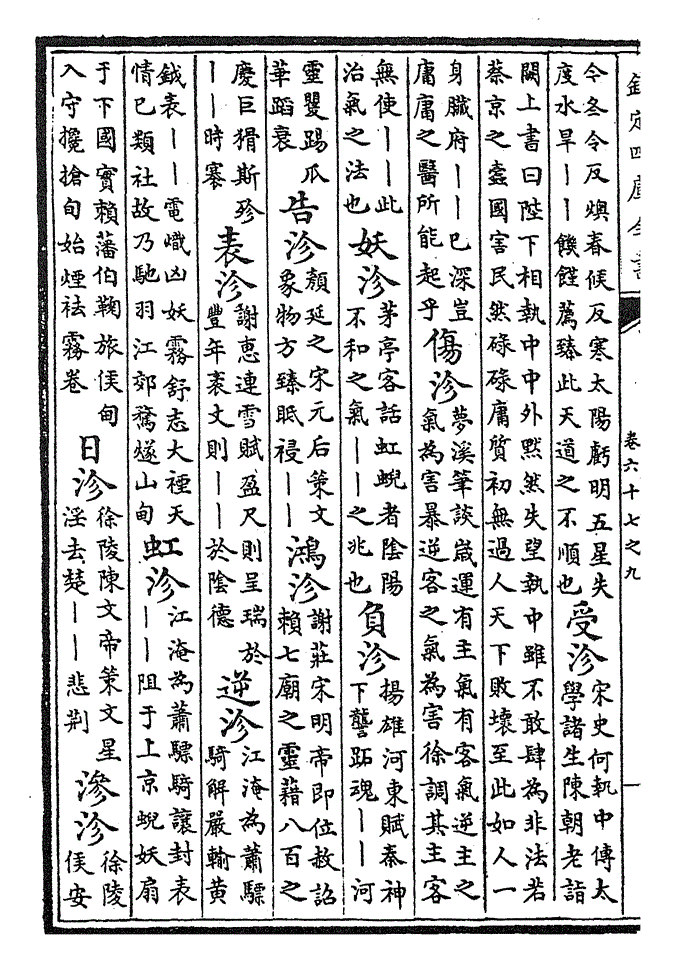 欽定四庫全書
卷六十七之九
令冬令反燠春候反寒太陽虧明五星失
度水旱——饑饉薦臻此天道之不順也
受沴
宋史何執中傳太
學諸生陳朝老詣
闕上書曰陛下相執中中外黙然失望執中雖不敢肆為非法若
蔡京之蠧國害民然碌碌庸質初無過人天下敗壞至此如人一
身臓府——已深豈
庸庸之醫所能起乎
傷沴
夢溪筆談嵗運有主氣有客氣逆主之
氣為害暴逆客之氣為害徐調其主客
無使——此
治氣之法也
妖沴
茅亭客話虹蜺者陰陽
不和之氣——之兆也
負沴
揚雄河東賦秦神
下讋跖魂——河
靈矍踢爪
華蹈衰
告沴
顔延之宋元后策文
象物方臻眂祲——
鴻沴
謝莊宋明帝即位赦詔
賴七廟之靈藉八百之
慶巨猾斯殄
——時搴
表沴
謝惠連雪賦盈尺則呈瑞於
豐年袤丈則——於陰德
逆沴
江淹為蕭驃
騎解嚴輸黄
鉞表——電熾凶妖霧舒志大禋天
情已類社故乃馳羽江郊驚燧山甸
虹沴
江淹為蕭驃騎讓封表
——阻于上京蜺妖扇
于下國實賴藩伯鞠旅侯甸
入守攙搶旬始煙祛霧卷
日沴
徐陵陳文帝策文星
淫去楚——悲荆
滲沴
徐陵
侯安